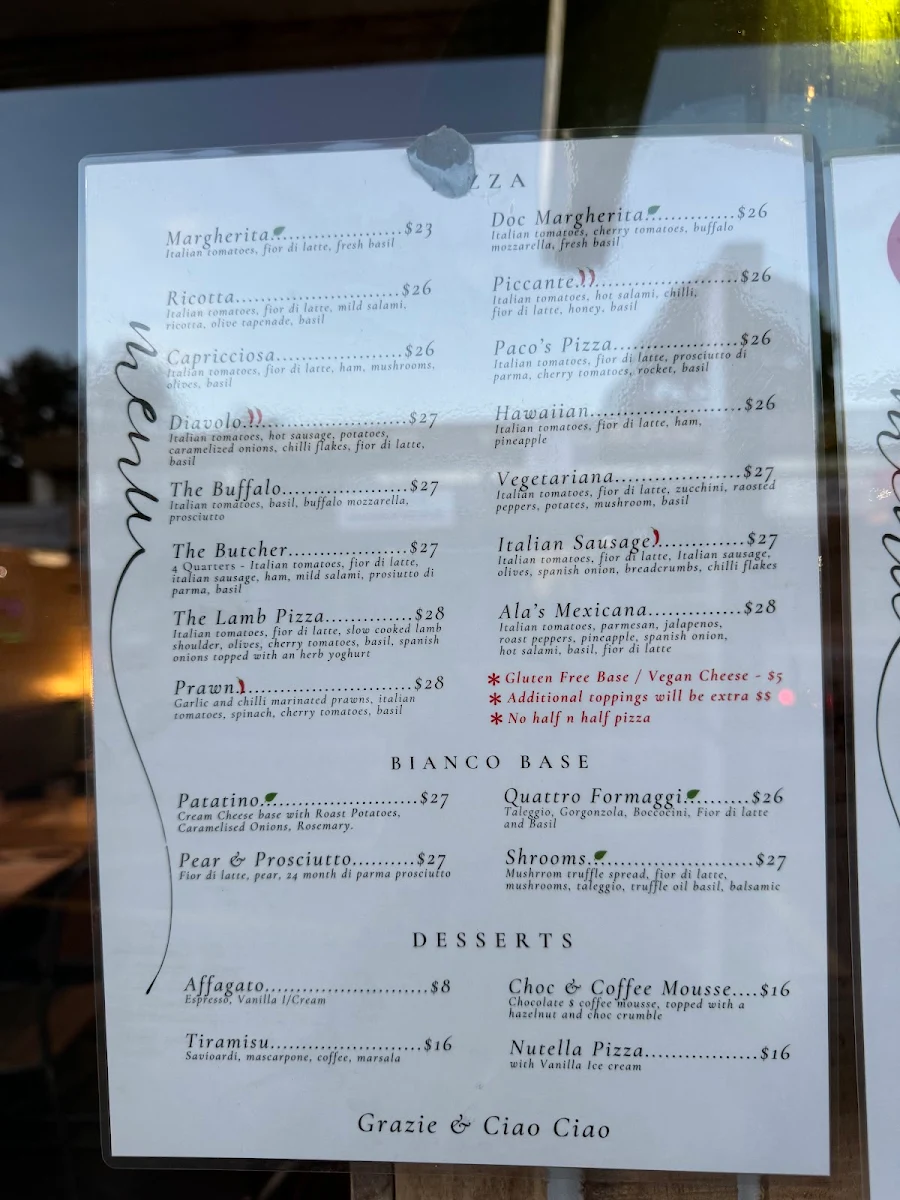 ZZA
Margherita..................$23
Italian tomatoes, fior di latte, fresh basil
Ricotta.........................$26
Italian tomatoes, fior di latte, mild salami,
ricotta, olive tapenade, basil
Capricciosa...................$26
Italian tomatoes, fior di latte, ham, mushrooms,
olives, basil
Diavolo.......................$27
Italian tomatoes, hot sausage, potatoes,
caramelized onions, chilli flakes, fior di latte,
basil
The Buffalo...................$27
Italian tomatoes, basil, buffalo mozzarella,
prosciutto
The Butcher..................$27
4 Quarters - Italian tomatoes, fior di latte,
italian sausage, ham, mild salami, prosiutto di
parma, basil
The Lamb Pizza.............$28
Italian tomatoes, fior di latte, slow cooked lamb
shoulder, olives, cherry tomatoes, basil, spanish
onions topped with an herb yoghurt
Prawn..........................$28
Garlic and chilli marinated prawns, italian
tomatoes, spinach, cherry tomatoes, basil
Doc Margherita.............$26
Italian tomatoes, cherry tomatoes, buffalo
mozzarella, fresh basil
Piccante.......................$26
Italian tomatoes, hot salami, chilli,
fior di latte, honey, basil
Paco's Pizza..................$26
Italian tomatoes, fior di latte, prosciutto di
parma, cherry tomatoes, rocket, basil
Hawaiian......................$26
Italian tomatoes, fior di latte, ham,
pineapple
Vegetariana...................$27
Italian tomatoes, fior di latte, zucchini, raosted
peppers, potates, mushroom, basil
Italian Sausage.............$27
Italian tomatoes, fior di latte, Italian sausage,
olives, spanish onion, breadcrumbs, chilli flakes
Ala's Mexicana..............$28
Italian tomatoes, parmesan, jalapenos,
roast peppers, pineapple, spanish onion,
hot salami, basil, fior di latte
* Gluten Free Base / Vegan Cheese - $5
* Additional toppings will be extra $$
* No half n half pizza
menu
BIANCO BASE
Patatino.......................$27
Cream Cheese base with Roast Potatoes,
Caramelised Onions, Rosemary.
Pear & Prosciutto.........$27
Fior di latte, pear, 24 month di parma prosciutto
Quattro Formaggi..........$26
Taleggio, Gorgonzola, Boccocini, Fior di latte
and Basil
Shrooms.......................$27
Mushrrom truffle spread, fior di latte,
mushrooms, taleggio, truffle oil basil, balsamic
DESSERTS
Affagato.........................$8
Espresso, Vanilla I/Cream
Tiramisu.......................$16
Savioardi, mascarpone, coffee, marsala
Choc & Coffee Mousse....$16
Chocolate $ coffee mousse, topped with a
hazelnut and choc crumble
Nutella Pizza.................$16
with Vanilla Ice cream
Grazie & Ciao Ciao